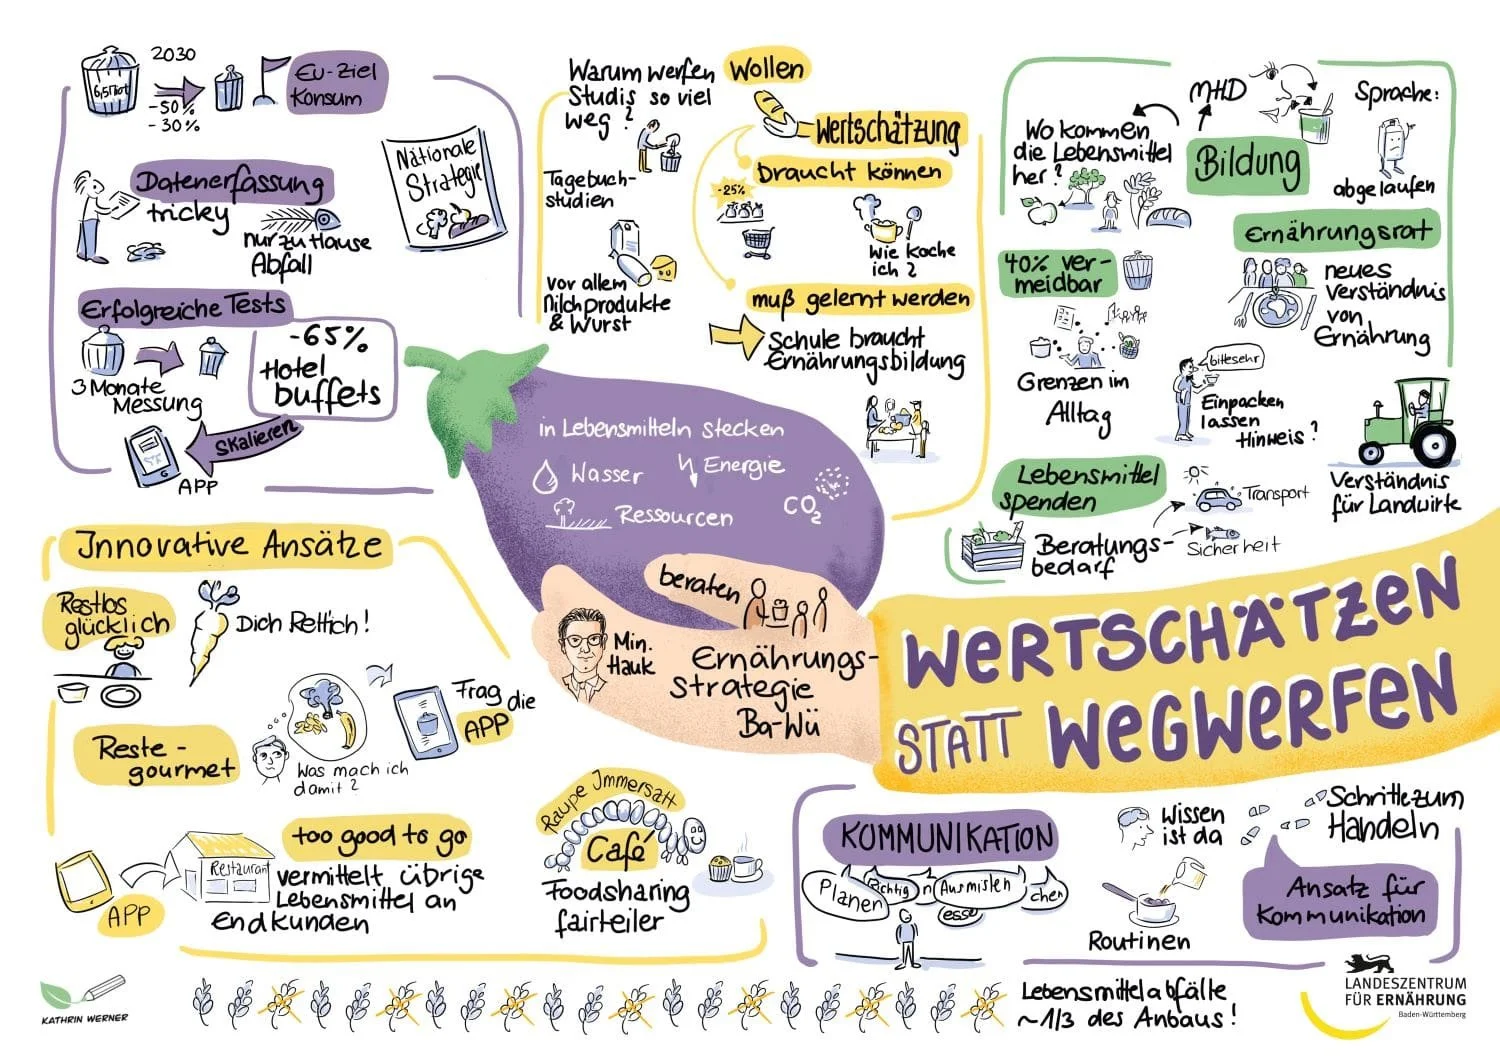 6,5 Mio t
2030
-50%
-30%
EU-Ziel
Konsum
Datenerfassung
tricky
nur zu Hause
Abfall
Nationale
Strategie
Erfolgreiche Tests
3 Monate
Messung
-65%
Hotel
buffets
Skalieren
APP
Warum werfen
Studis so viel
weg?
Tagebuch-
studien
vor allem
Milchprodukte
& Wurst
Wollen
Wertschätzung
braucht können
-25%
Wie koche
ich?
muß gelernt werden
Schule braucht
Ernährungsbildung
MHD
Sprache:
abgelaufen
Wo kommen
die Lebensmittel
her?
Bildung
40% ver-
meidbar
Grenzen im
Alltag
Ernährungsrat
neues
Verständnis
von
Ernährung
bittesehr
Einpacken
lassen
Hinweis?
Verständnis
für Landwirte
Lebensmittel
spenden
Transport
Sicherheit
Beratungs-
bedarf
in Lebensmitteln stecken
Wasser
Energie
Ressourcen
CO2
beraten
Min.
Hauk
Ernährungs-
strategie
Ba-Wü
WERTSCHÄTZEN
STATT WEGWERFEN
Innovative Ansätze
Restlos
glücklich
Dich Rettich!
Reste-
gourmet
Was mach ich
damit?
Frag die
APP
APP
Restaurant
too good to go
vermittelt übrige
Lebensmittel an
Endkunden
Raupe Immersatt
Café
Foodsharing
fairteiler
KOMMUNIKATION
Planen
Richtig
Ausmisten
chen
esse
Wissen
ist da
Schritte zum
Handeln
Routinen
Ansatz für
Kommunikation
Lebensmittelabfälle
~1/3 des Anbaus!
KATHRIN WERNER
LANDESZENTRUM
FÜR ERNÄHRUNG
Baden-Württemberg